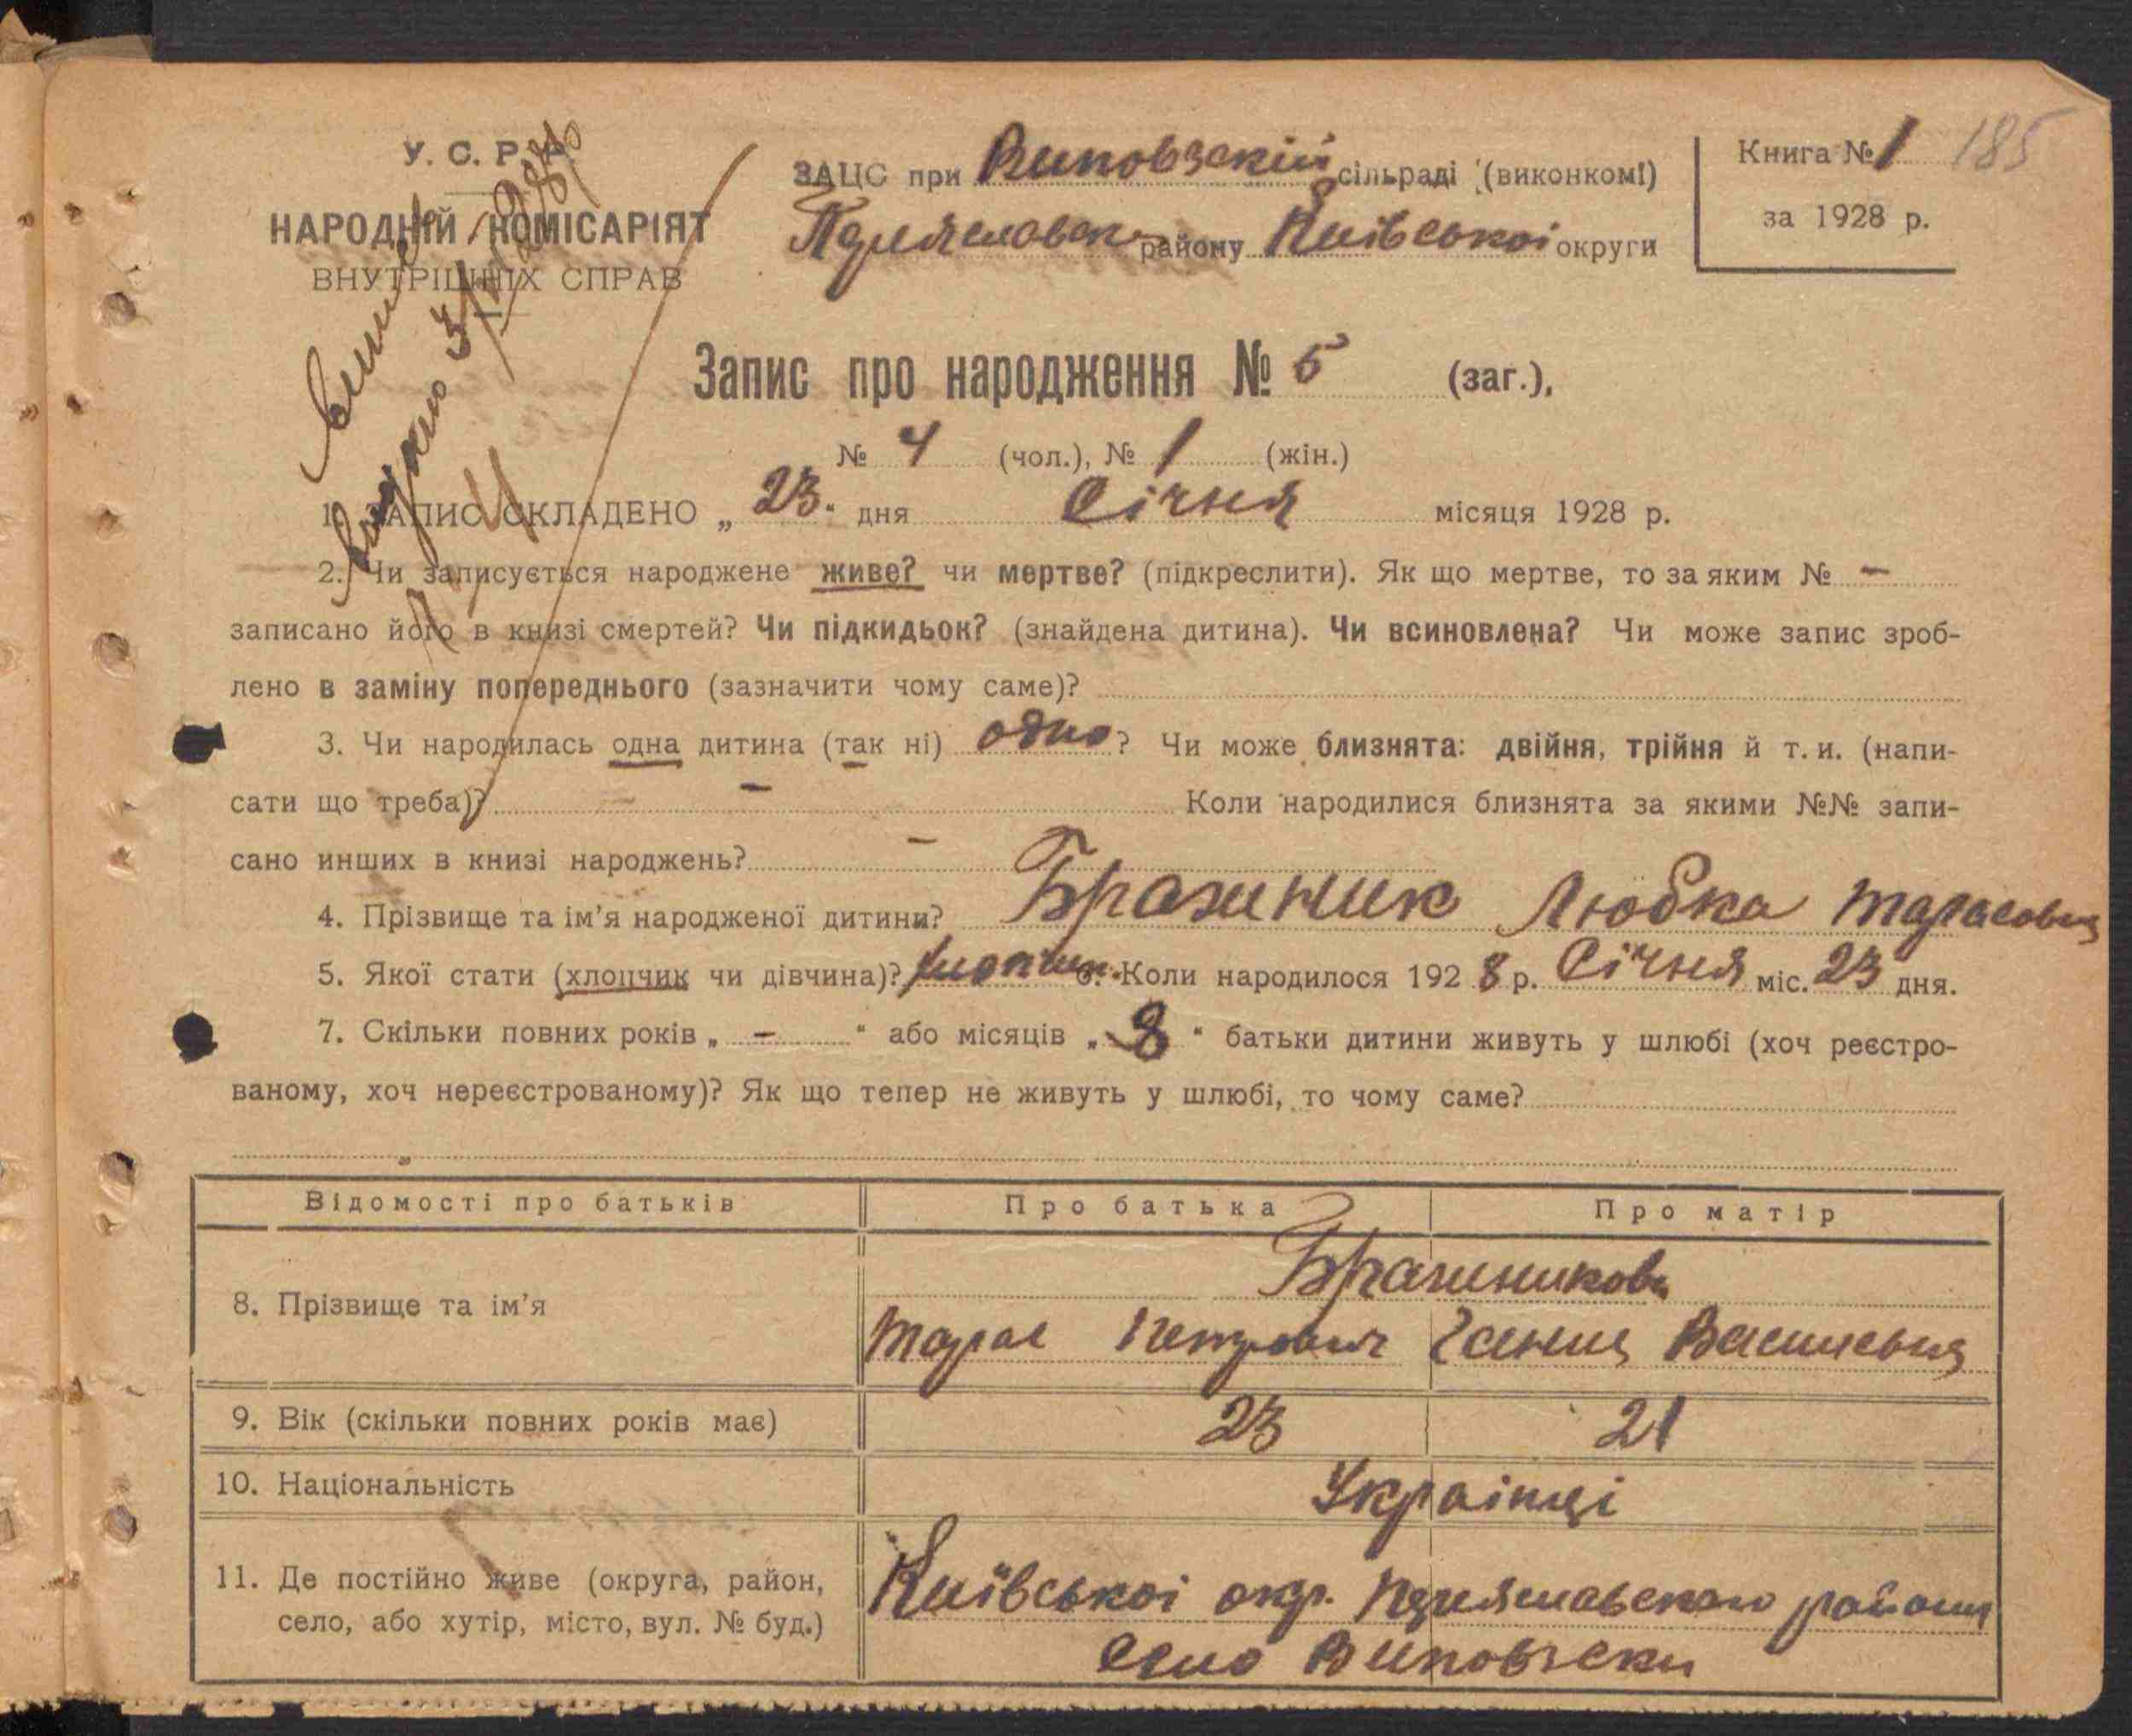 У. С. Р. Р.
НАРОДНІЙ КОМІСАРІЯТ
ВНУТРІШНІХ СПРАВ
ЗАЦС при Виповзскій сільраді (виконкомі)
району Київської округи
Книга № 1 185
за 1928 р.
Запис про народження № 5 (заг.),
№ 4 (чол.), № 1 (жін.)
1. ЗАПИС СКЛАДЕНО „ 23 “ дня Січня місяця 1928 р.
2. Чи записується народжене живе? чи мертве? (підкреслити). Як що мертве, то за яким № –
записано його в книзі смертей? Чи підкидьок? (знайдена дитина). Чи всиновлена? Чи може запис зроб-
лено в заміну попереднього (зазначити чому саме)?
3. Чи народилась одна дитина (так ні) одно? Чи може близнята: двійня, трійня й т. и. (напи-
сати що треба)? – Коли народилися близнята за якими №№ запи-
сано инших в книзі народжень? –
4. Прізвище та ім’я народженої дитини? Бражник Любка
5. Якої стати (хлопчик чи дівчина)? хлопчик 6. Коли народилося 1928 р. Січня міс. 23 дня.
7. Скільки повних років „ – “ або місяців „ 8 “ батьки дитини живуть у шлюбі (хоч реєстро-
ваному, хоч нереєстрованому)? Як що тепер не живуть у шлюбі, то чому саме?
Відомості про батьків Про батька Про матір
8. Прізвище та ім’я
Тарас Петрович
9. Вік (скільки повних років має) 23 21
10. Національність Українці
11. Де постійно живе (округа, район,
село, або хутір, місто, вул. № буд.)
Київської окр. району
село Виповзски